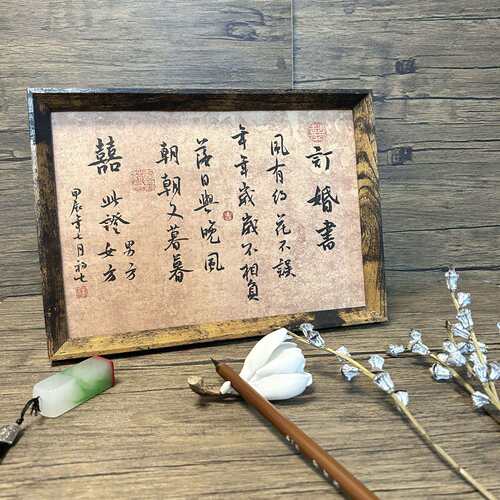 訂婚書
風有約花不誤
年年歲歲不相負
落日與晚風
朝朝又暮暮
囍
此證
男方
女方
甲辰年七月初七